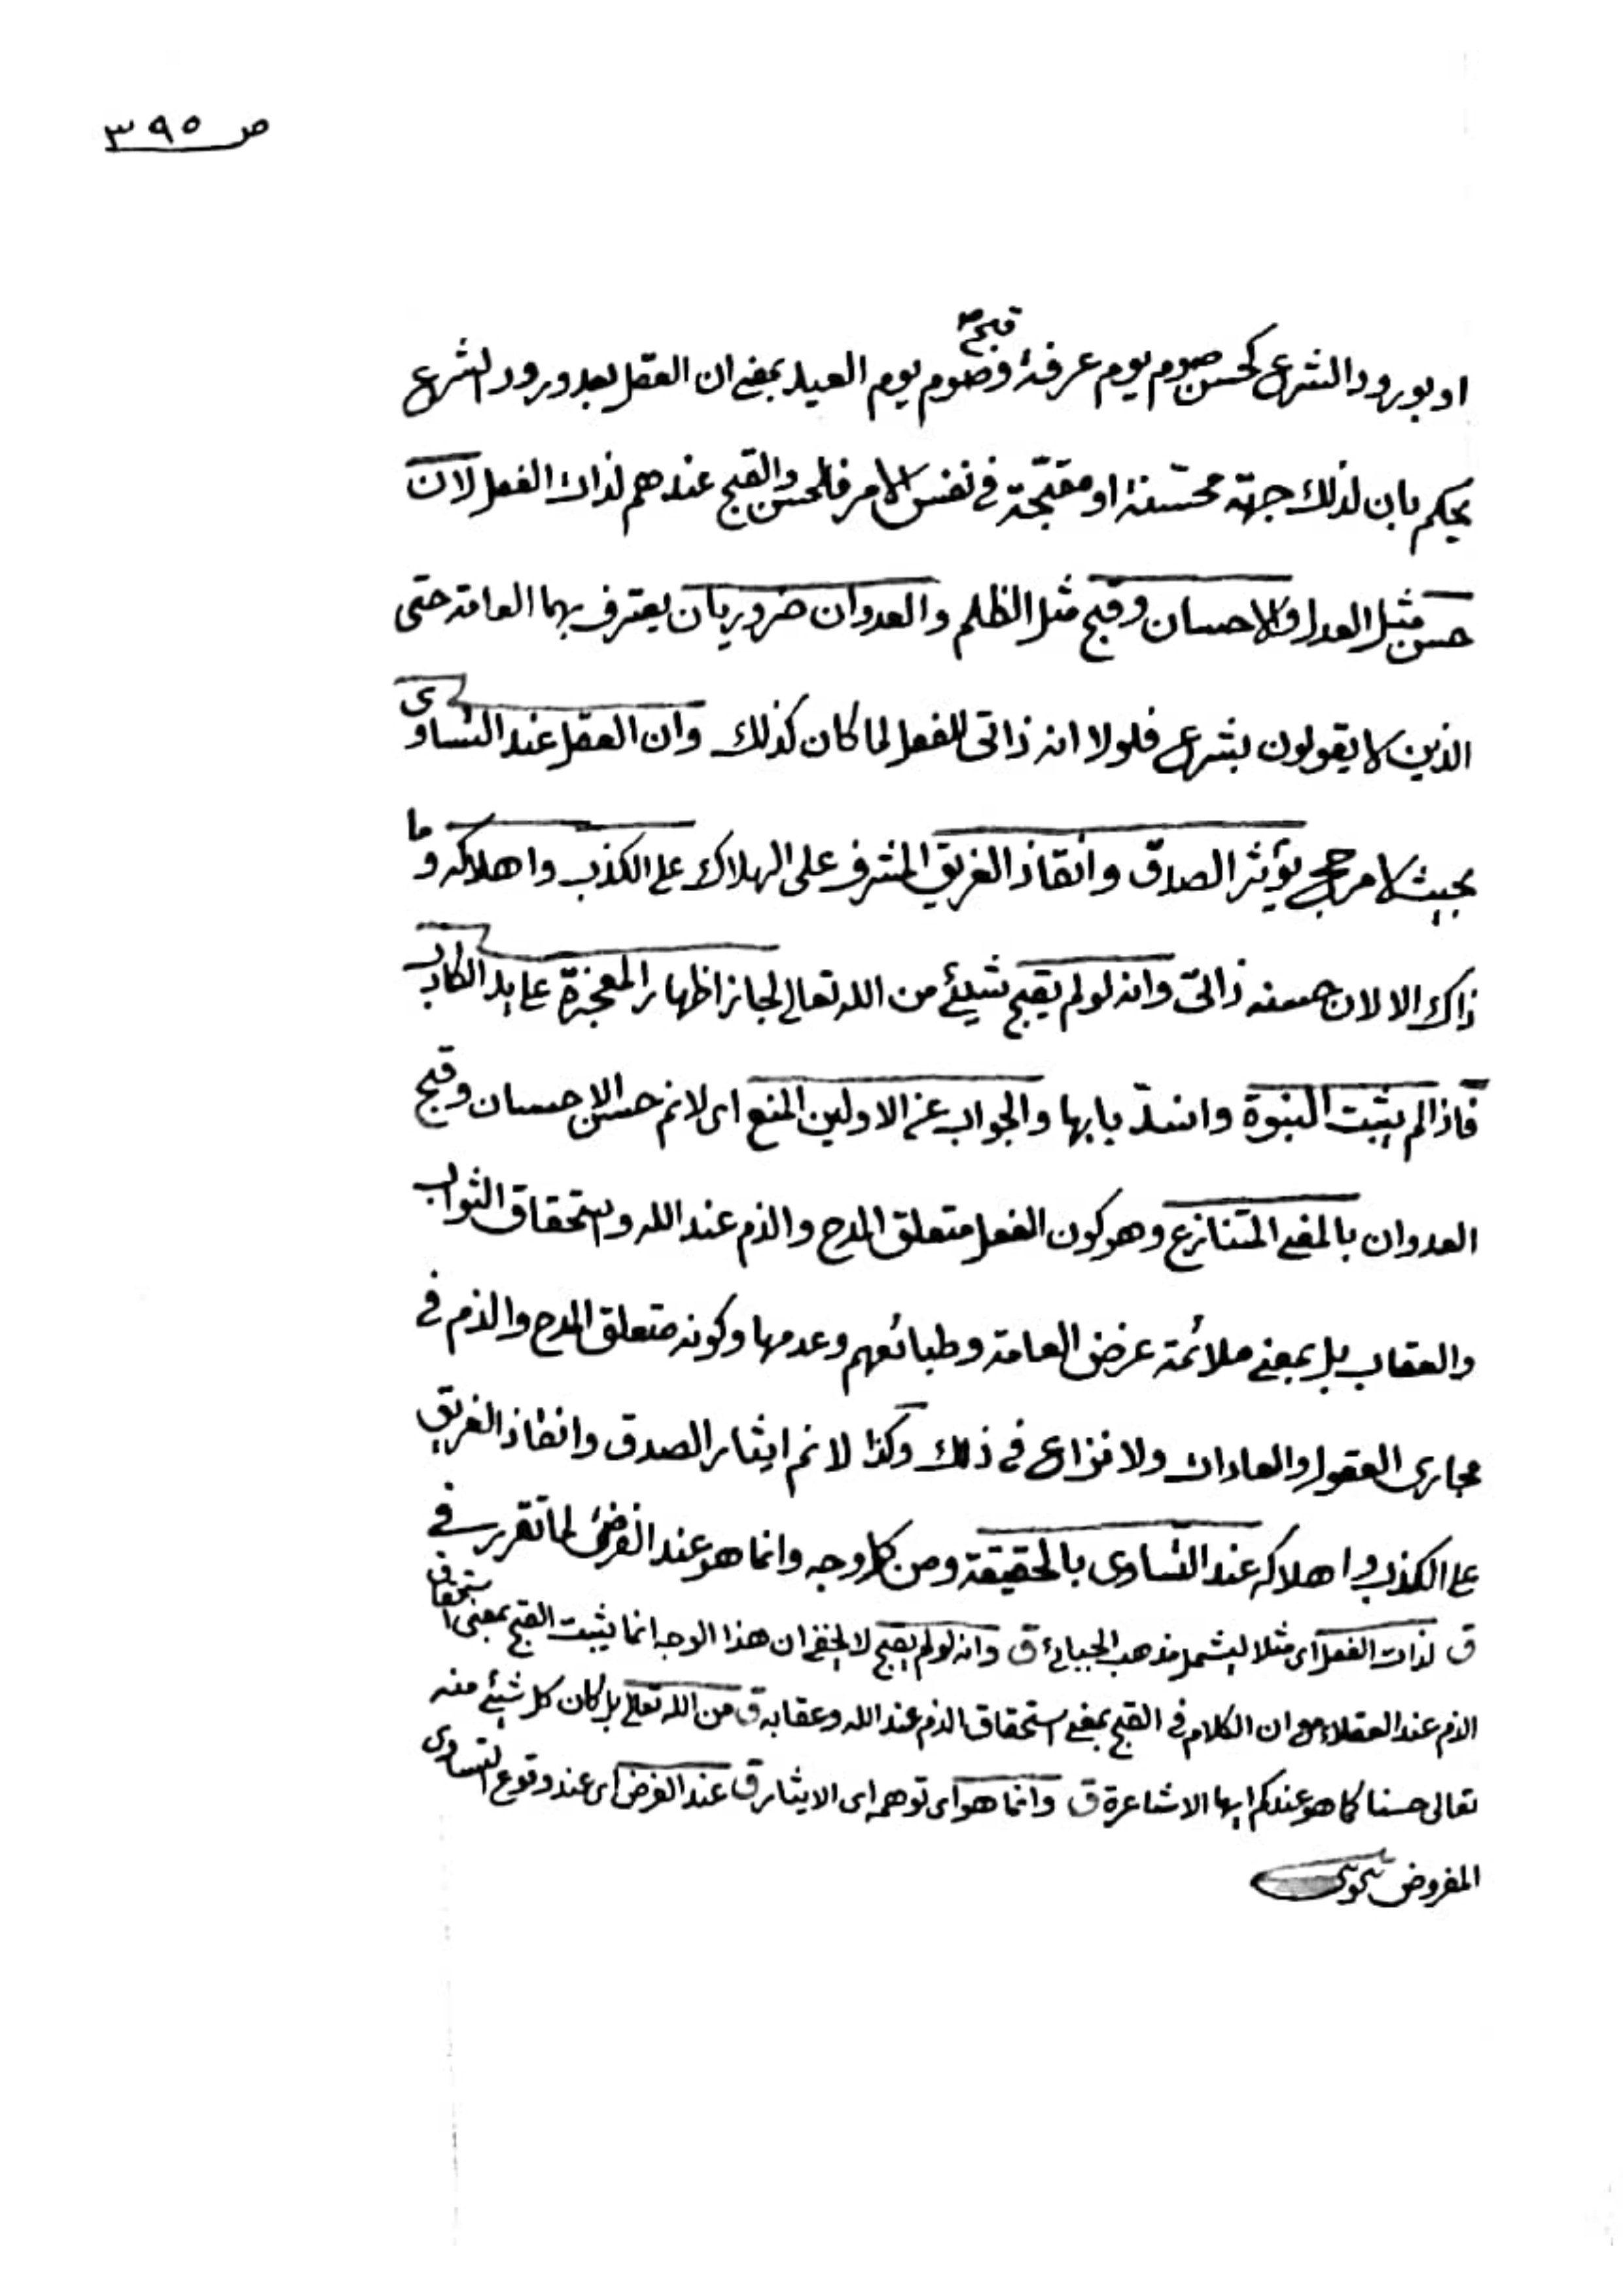 ص ٣٩٥
او بورود الشرع كحسن صوم يوم عرفة وقبح صوم يوم العيد بمعنى ان العقل بعد ورود الشرع
يحكم بان لذلك جهة محسّنة او مقبّحة في نفس الامر فالحسن والقبح عندهم لذات الفعل لان
حسن مثل العدل والاحسان وقبح مثل الظلم والعدوان ضروريان يعترف بهما العامة حتى
الذين لا يقولون بشرع فلولا انه ذاتي للفعل لما كان كذلك وان العقل عند التساوى
بحيث لا مرجح يؤثر الصدق وانقاذ الغريق المشرف على الهلاك على الكذب واهلاكه وما
ذاك الا لان حسنه ذاتي وانه لو لم يقبح شيئ من الله تعالى لجاز اظهار المعجزة على يد الكاذب
فاذا لم يثبت النبوة وانسدّ بابها والجواب عن الاولين المنع اى لانم حسن الاحسان وقبح
العدوان بالمعنى المتنازع وهو كون الفعل متعلق المدح والذم عند الله واستحقاق الثواب
والعقاب بل بمعنى ملائمة غرض العامة وطبائعهم وعدمها وكونه متعلق المدح والذم في
مجارى العقول والعادات ولا نزاع في ذلك وكذا لا نم ايثار الصدق وانقاذ الغريق
على الكذب واهلاكه عند التساوى بالحقيقة ومن كل وجه وانما هو عند الفرضى لما تقرر في
ق لذات الفعل اى مثلا ليشمل مذهب الجبائى ق وانه لو لم يقبح لا يخفى ان هذا الوجه انما يثبت القبح بمعنى استحقاق
الذم عند العقلاء مع ان الكلام في القبح بمعنى استحقاق الذم عند الله وعقابه ق من الله تعالى بل كان كل شيئ منه
تعالى حسنا كما هو عندكم ايها الاشاعرة ق وانما هو اى توهم اى الايثار ق عند الفرض اى عند وقوع التساوى
المفروض